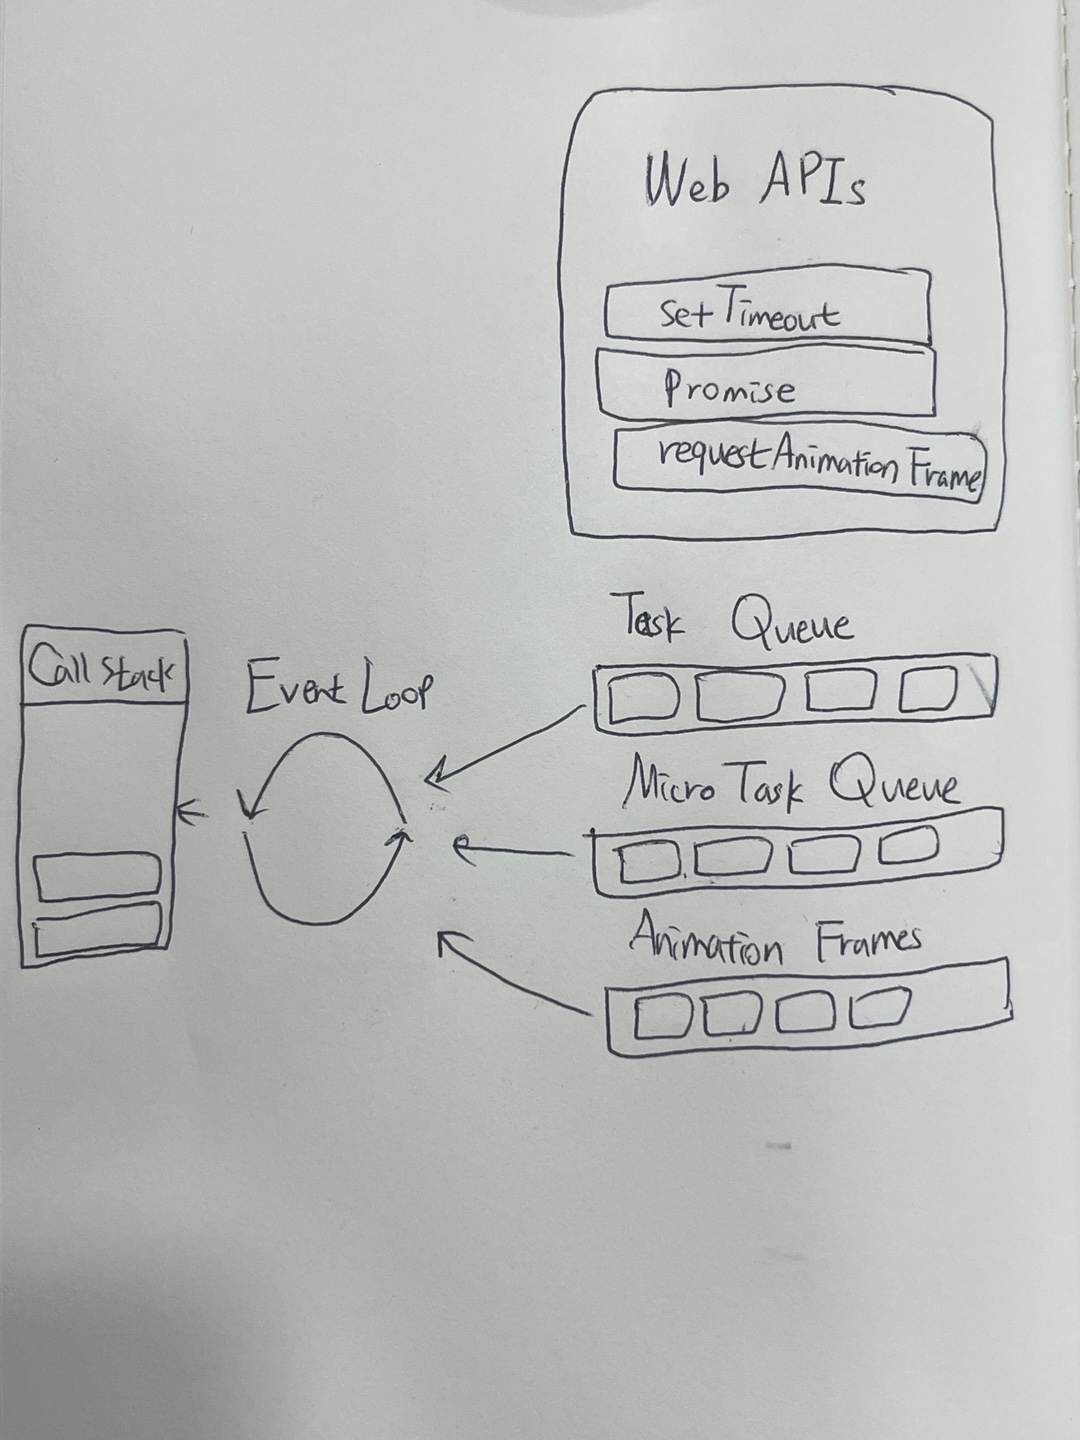 Web APIs
setTimeout
Promise
requestAnimationFrame
Task Queue
Call Stack
Event Loop
Micro Task Queue
Animation Frames